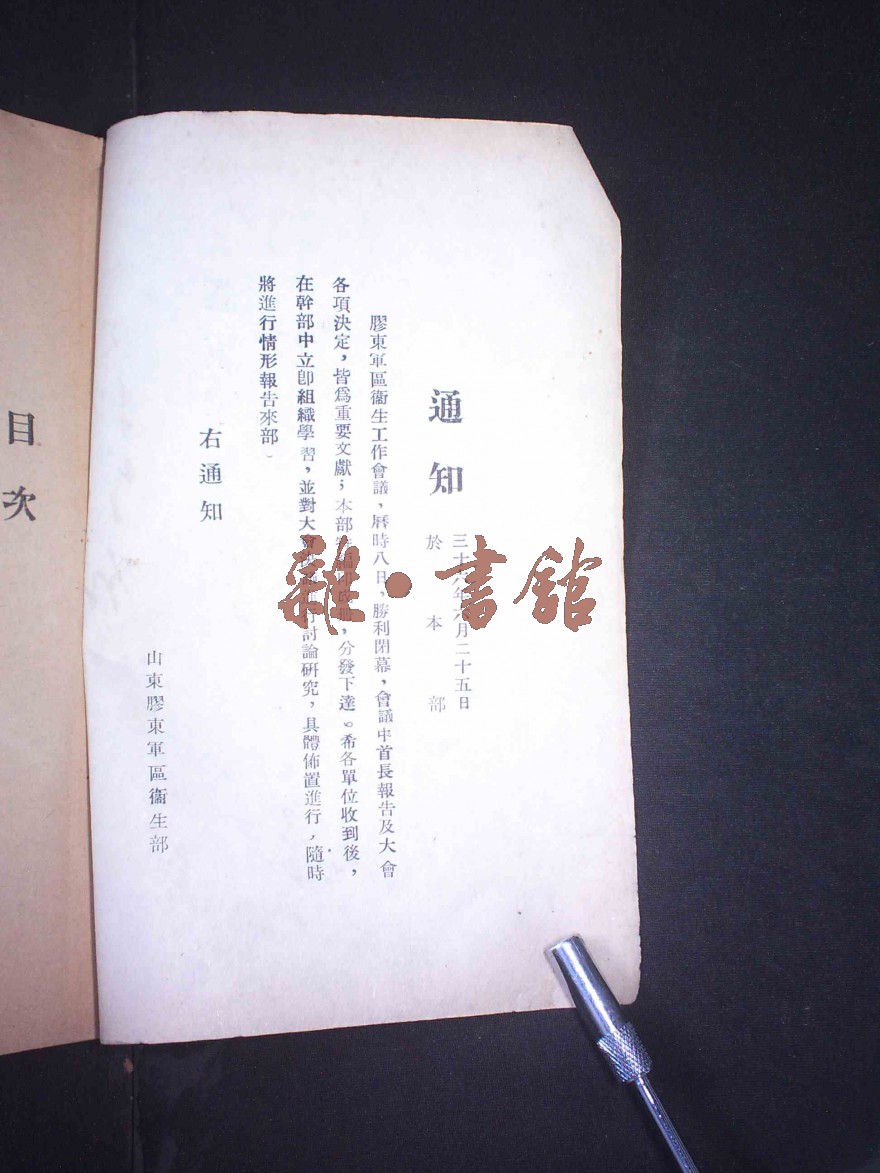 通知
三十六年六月二十五日
於本部
膠東軍區衞生工作會議，歷時八日，勝利閉幕，會議中首長報告及大會
各項決定，皆爲重要文獻；本部，分發下達。希各單位收到後，
在幹部中立卽組織學習，並對大會討論研究，具體佈置進行，隨時
將進行情形報告來部。
右通知
山東膠東軍區衞生部
目次
雜·書館